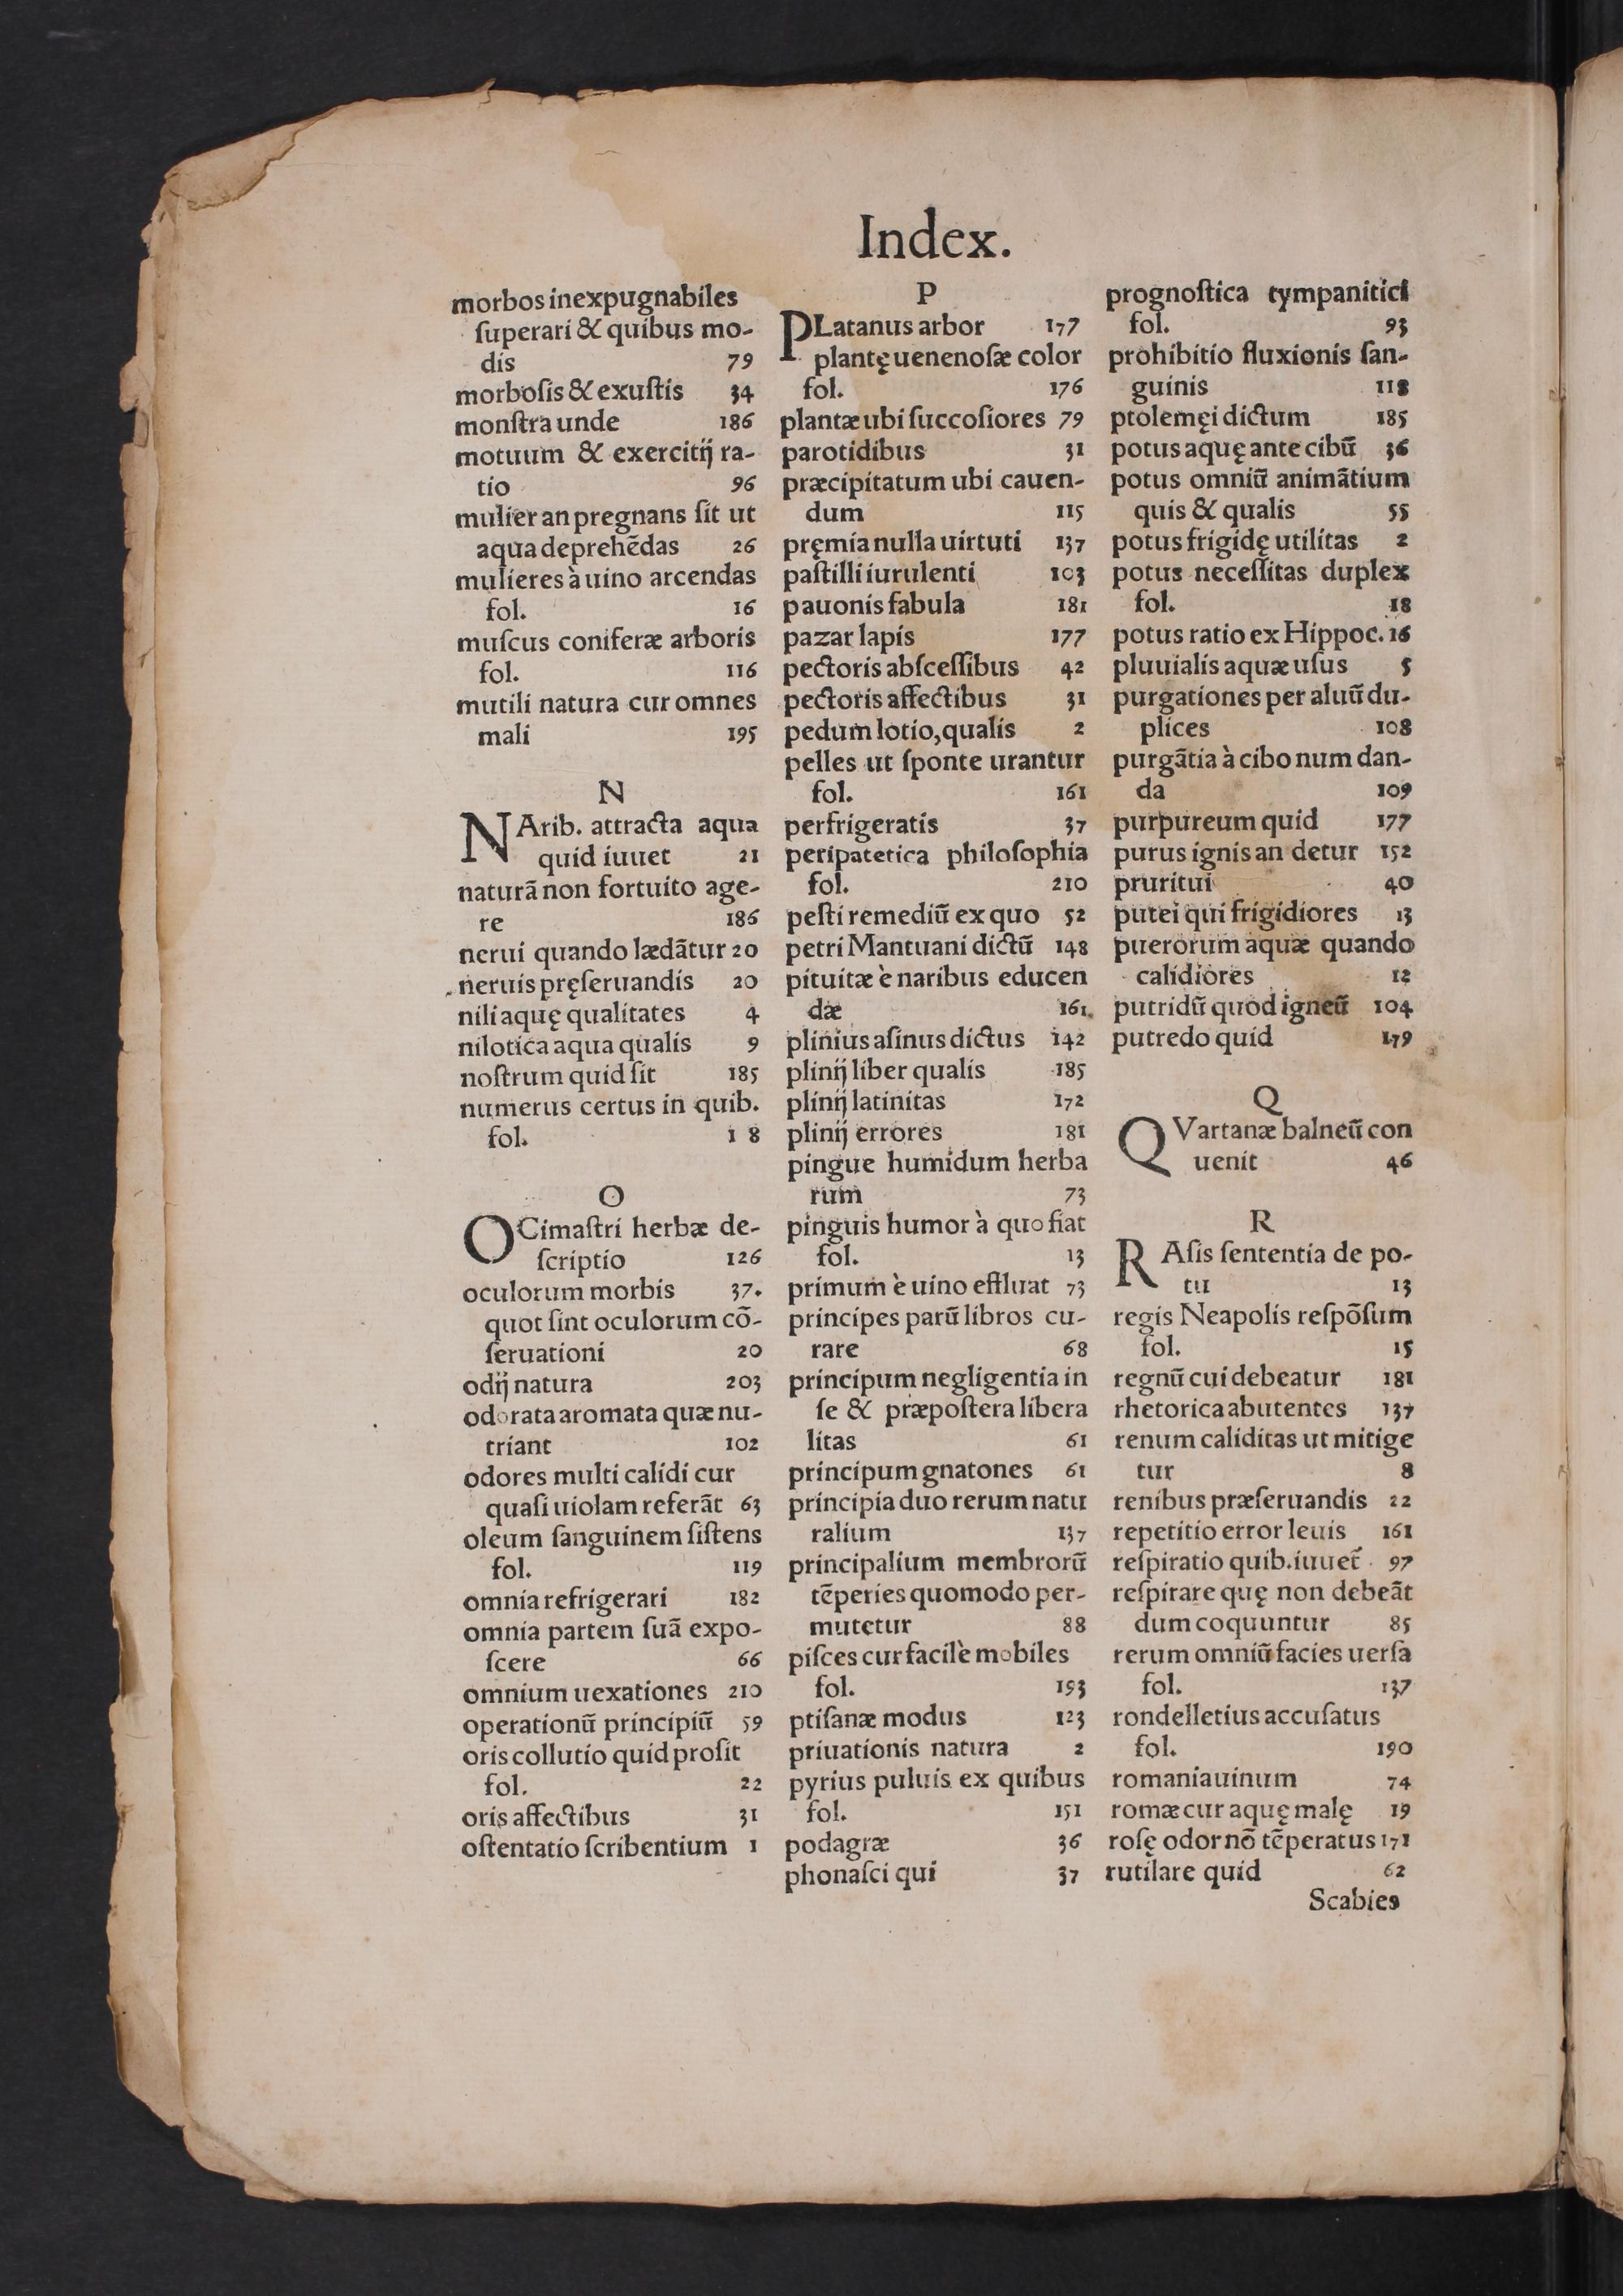 Index.
morbos inexpugnabiles
ſuperari & quibus mo-
dis 79
morboſis & exuſtis 34
monſtra unde 186
motuum & exercitij ra-
tio 96
mulier an pregnans ſit ut
aqua deprehẽdas 26
mulieres à uino arcendas
fol. 16
muſcus coniferæ arboris
fol. 116
mutili natura cur omnes
mali 195
N
NArib. attracta aqua
quid iuuet 21
naturã non fortuito age-
re 186
nerui quando lædãtur 20
neruis pręſeruandis 20
nili aquę qualitates 4
nilotica aqua qualis 9
noſtrum quid ſit 185
numerus certus in quib.
fol. 1 8
O
OCimaſtri herbæ de-
ſcriptio 126
oculorum morbis 37.
quot ſint oculorum cõ-
ſeruationi 20
odij natura 203
odorata aromata quæ nu-
triant 102
odores multi calidi cur
quaſi uiolam referãt 63
oleum ſanguinem ſiſtens
fol. 119
omnia refrigerari 182
omnia partem ſuã expo-
ſcere 66
omnium uexationes 210
operationũ principiũ 59
oris collutio quid proſit
fol. 22
oris affectibus 31
oſtentatio ſcribentium 1
P
PLatanus arbor 177
plantę uenenoſæ color
fol. 176
plantæ ubi ſuccoſiores 79
parotidibus 31
præcipitatum ubi cauen-
dum 115
pręmia nulla uirtuti 137
paſtilli iurulenti 103
pauonis fabula 181
pazar lapis 177
pectoris abſceſſibus 42
pectoris affectibus 31
pedum lotio, qualis 2
pelles ut ſponte urantur
fol. 161
perfrigeratis 37
peripatetica philoſophia
fol. 210
peſti remediũ ex quo 52
petri Mantuani dictũ 148
pituitæ è naribus educen
dæ 161.
plinius aſinus dictus 142
plinij liber qualis 185
plinij latinitas 172
plinij errores 181
pingue humidum herba
rum 73
pinguis humor à quo fiat
fol. 13
primum è uino effluat 73
principes parũ libros cu-
rare 68
principum negligentia in
ſe & præpoſtera libera
litas 61
principum gnatones 61
principia duo rerum natu
ralium 137
principalium membrorũ
tẽperies quomodo per-
mutetur 88
piſces cur facilè mobiles
fol. 193
ptiſanæ modus 123
priuationis natura 2
pyrius puluis ex quibus
fol. 151
podagræ 36
phonaſci qui 37
prognoſtica tympanitici
fol. 93
prohibitio fluxionis ſan-
guinis 118
ptolemęi dictum 185
potus aquę ante cibũ 36
potus omniũ animãtium
quis & qualis 55
potus frigidę utilitas 2
potus neceſſitas duplex
fol. 18
potus ratio ex Hippoc. 16
pluuialis aquæ uſus 5
purgationes per aluũ du-
plices 108
purgãtia à cibo num dan-
da 109
purpureum quid 177
purus ignis an detur 152
pruritui 40
putei qui frigidiores 13
puerorum aquæ quando
calidiores 12
putridũ quod igneũ 104
putredo quid 179
Q
QVartanæ balneũ con
uenit 46
R
RAſis ſententia de po-
tu 13
regis Neapolis reſpõſum
fol. 15
regnũ cui debeatur 181
rhetorica abutentes 137
renum caliditas ut mitige
tur 8
renibus præſeruandis 22
repetitio error leuis 161
reſpiratio quib. iuuet 97
reſpirare quę non debeãt
dum coquuntur 85
rerum omniũ facies uerſa
fol. 137
rondelletius accuſatus
fol. 190
romania uinum 74
romæ cur aquę malę 19
roſę odor nõ tẽperatus 171
rutilare quid 62
Scabies